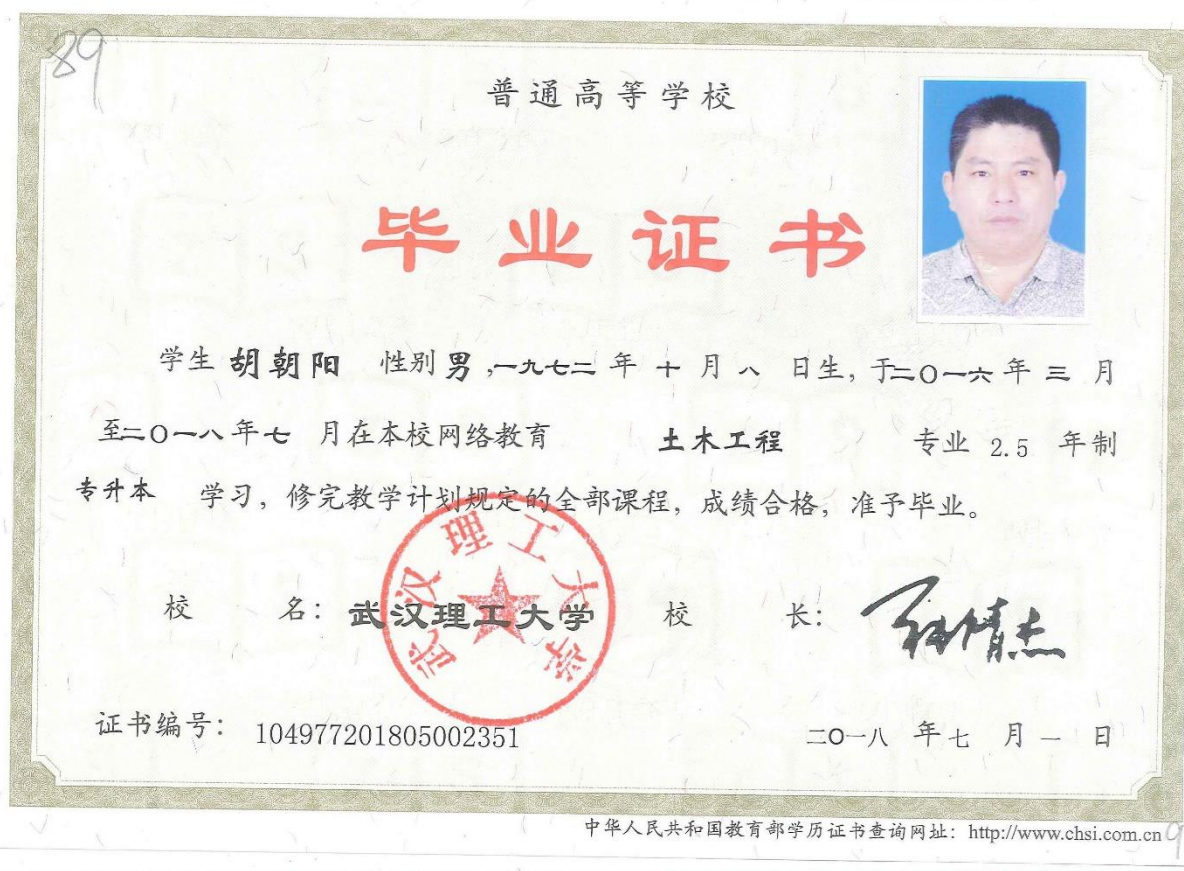 89
普通高等学校
毕业证书
学生 胡朝阳 性别 男 ,一九七二 年 十 月 八 日生，于二〇一六 年 三 月
至二〇一八 年 七 月在本校网络教育 土木工程 专业 2.5 年制
专升本 学习，修完教学计划规定的全部课程，成绩合格，准予毕业。
武汉理工大学
校 名：武汉理工大学 校 长：
证书编号：104977201805002351 二〇一八 年 七 月 一 日
中华人民共和国教育部学历证书查询网址：http://www.chsi.com.cn